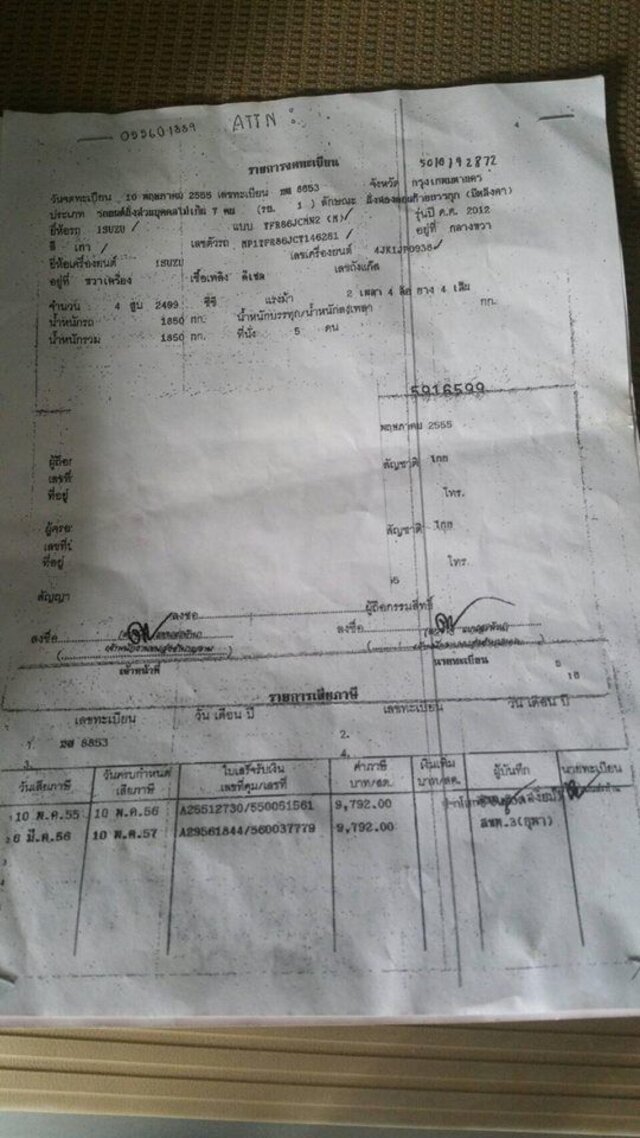 095601889 ATTN :
รายการจดทะเบียน 5010192872
วันจดทะเบียน 10 พฤษภาคม 2555 เลขทะเบียน 8853 จังหวัด กรุงเทพมหานคร
ประเภท รถยนต์นั่งส่วนบุคคลไม่เกิน 7 คน (รย. 1 ) ลักษณะ นั่งสองตอนท้ายบรรทุก (มีหลังคา)
ยี่ห้อรถ ISUZU แบบ TFR86JCMN2 (M) รุ่นปี ค.ศ. 2012
สี เทา เลขตัวรถ MP1TFR86JCT146281 อยู่ที่ กลางขวา
ยี่ห้อเครื่องยนต์ ISUZU เลขเครื่องยนต์ 4JK1JP0936
อยู่ที่ ขวาเครื่อง เชื้อเพลิง ดีเซล เลขถังแก๊ส
จำนวน 4 สูบ 2499 ซีซี แรงม้า 2 เพลา 4 ล้อ ยาง 4 เส้น
น้ำหนักรถ 1850 กก. น้ำหนักบรรทุก/น้ำหนักลงเพลา กก.
น้ำหนักรวม 1850 กก. ที่นั่ง 5 คน
5916599
พฤษภาคม 2555
ผู้ถือ สัญชาติ ไทย
เลขที่
ที่อยู่ โทร.
ผู้ครอ สัญชาติ ไทย
เลขที่
ที่อยู่ โทร
สัญญา
ลงชื่อ ผู้ถือกรรมสิทธิ์
ลงชื่อ ลงชื่อ
เจ้าหน้าที่ นายทะเบียน
รายการเสียภาษี 18
เลขทะเบียน วัน เดือน ปี เลขทะเบียน วัน เดือน ปี
1. 8853 2.
3. 4.
วันเสียภาษี วันครบกำหนดเสียภาษี ใบเสร็จรับเงิน เลขที่คุม/เลขที่ ค่าภาษี บาท/สต. เงินเพิ่ม บาท/สต. ผู้บันทึก นายทะเบียน
10 พ.ค.55 10 พ.ค.56 A26512730/550051561 9,792.00
6 มี.ค.56 10 พ.ค.57 A29561844/560037779 9,792.00 สขพ.3(กุฬา)